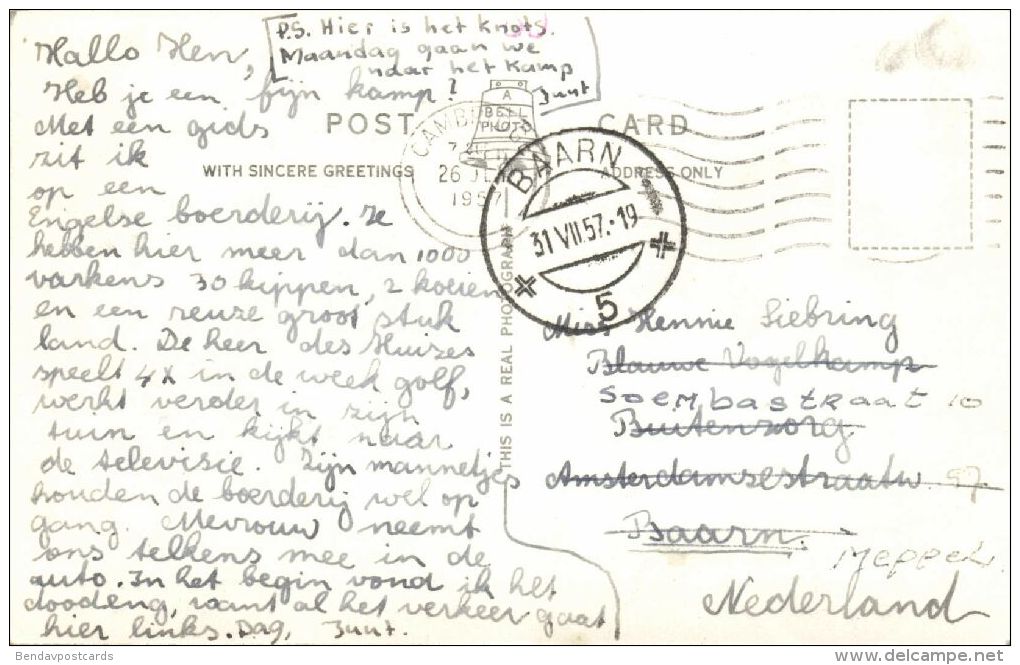 P.S. Hier is het knots.
Maandag gaan we
naar het kamp
Juut
Hallo Hen,
Heb je een fijn kamp?
Met een gids
zit ik
op een
Engelse boerderij. Ze
hebben hier meer dan 1000
varkens 30 kippen, 2 koeien
en een reuze groot stuk
land. De heer des Huizes
speelt 4x in de week golf,
werkt verder in zijn
tuin en kijkt naar
de televisie. Zijn mannetjes
houden de boerderij wel op
gang. Mevrouw neemt
ons telkens mee in de
auto. In het begin vond ik het
doodeng, want al het verkeer gaat
hier links. Dag, Juut.
POST CARD
WITH SINCERE GREETINGS
ADDRESS ONLY
A
BELL
PHOTO
26
1957
BAARN
31 VII 57.-19
5
THIS IS A REAL PHOTOGRAPH
Miss Hennie Siebring
Blauwe Vogelkamp
Soembastraat 10
Buitenzorg
Amsterdamsestraatw. 57
Baarn.
Meppel.
Nederland
Bendavpostcards
delcampe.net